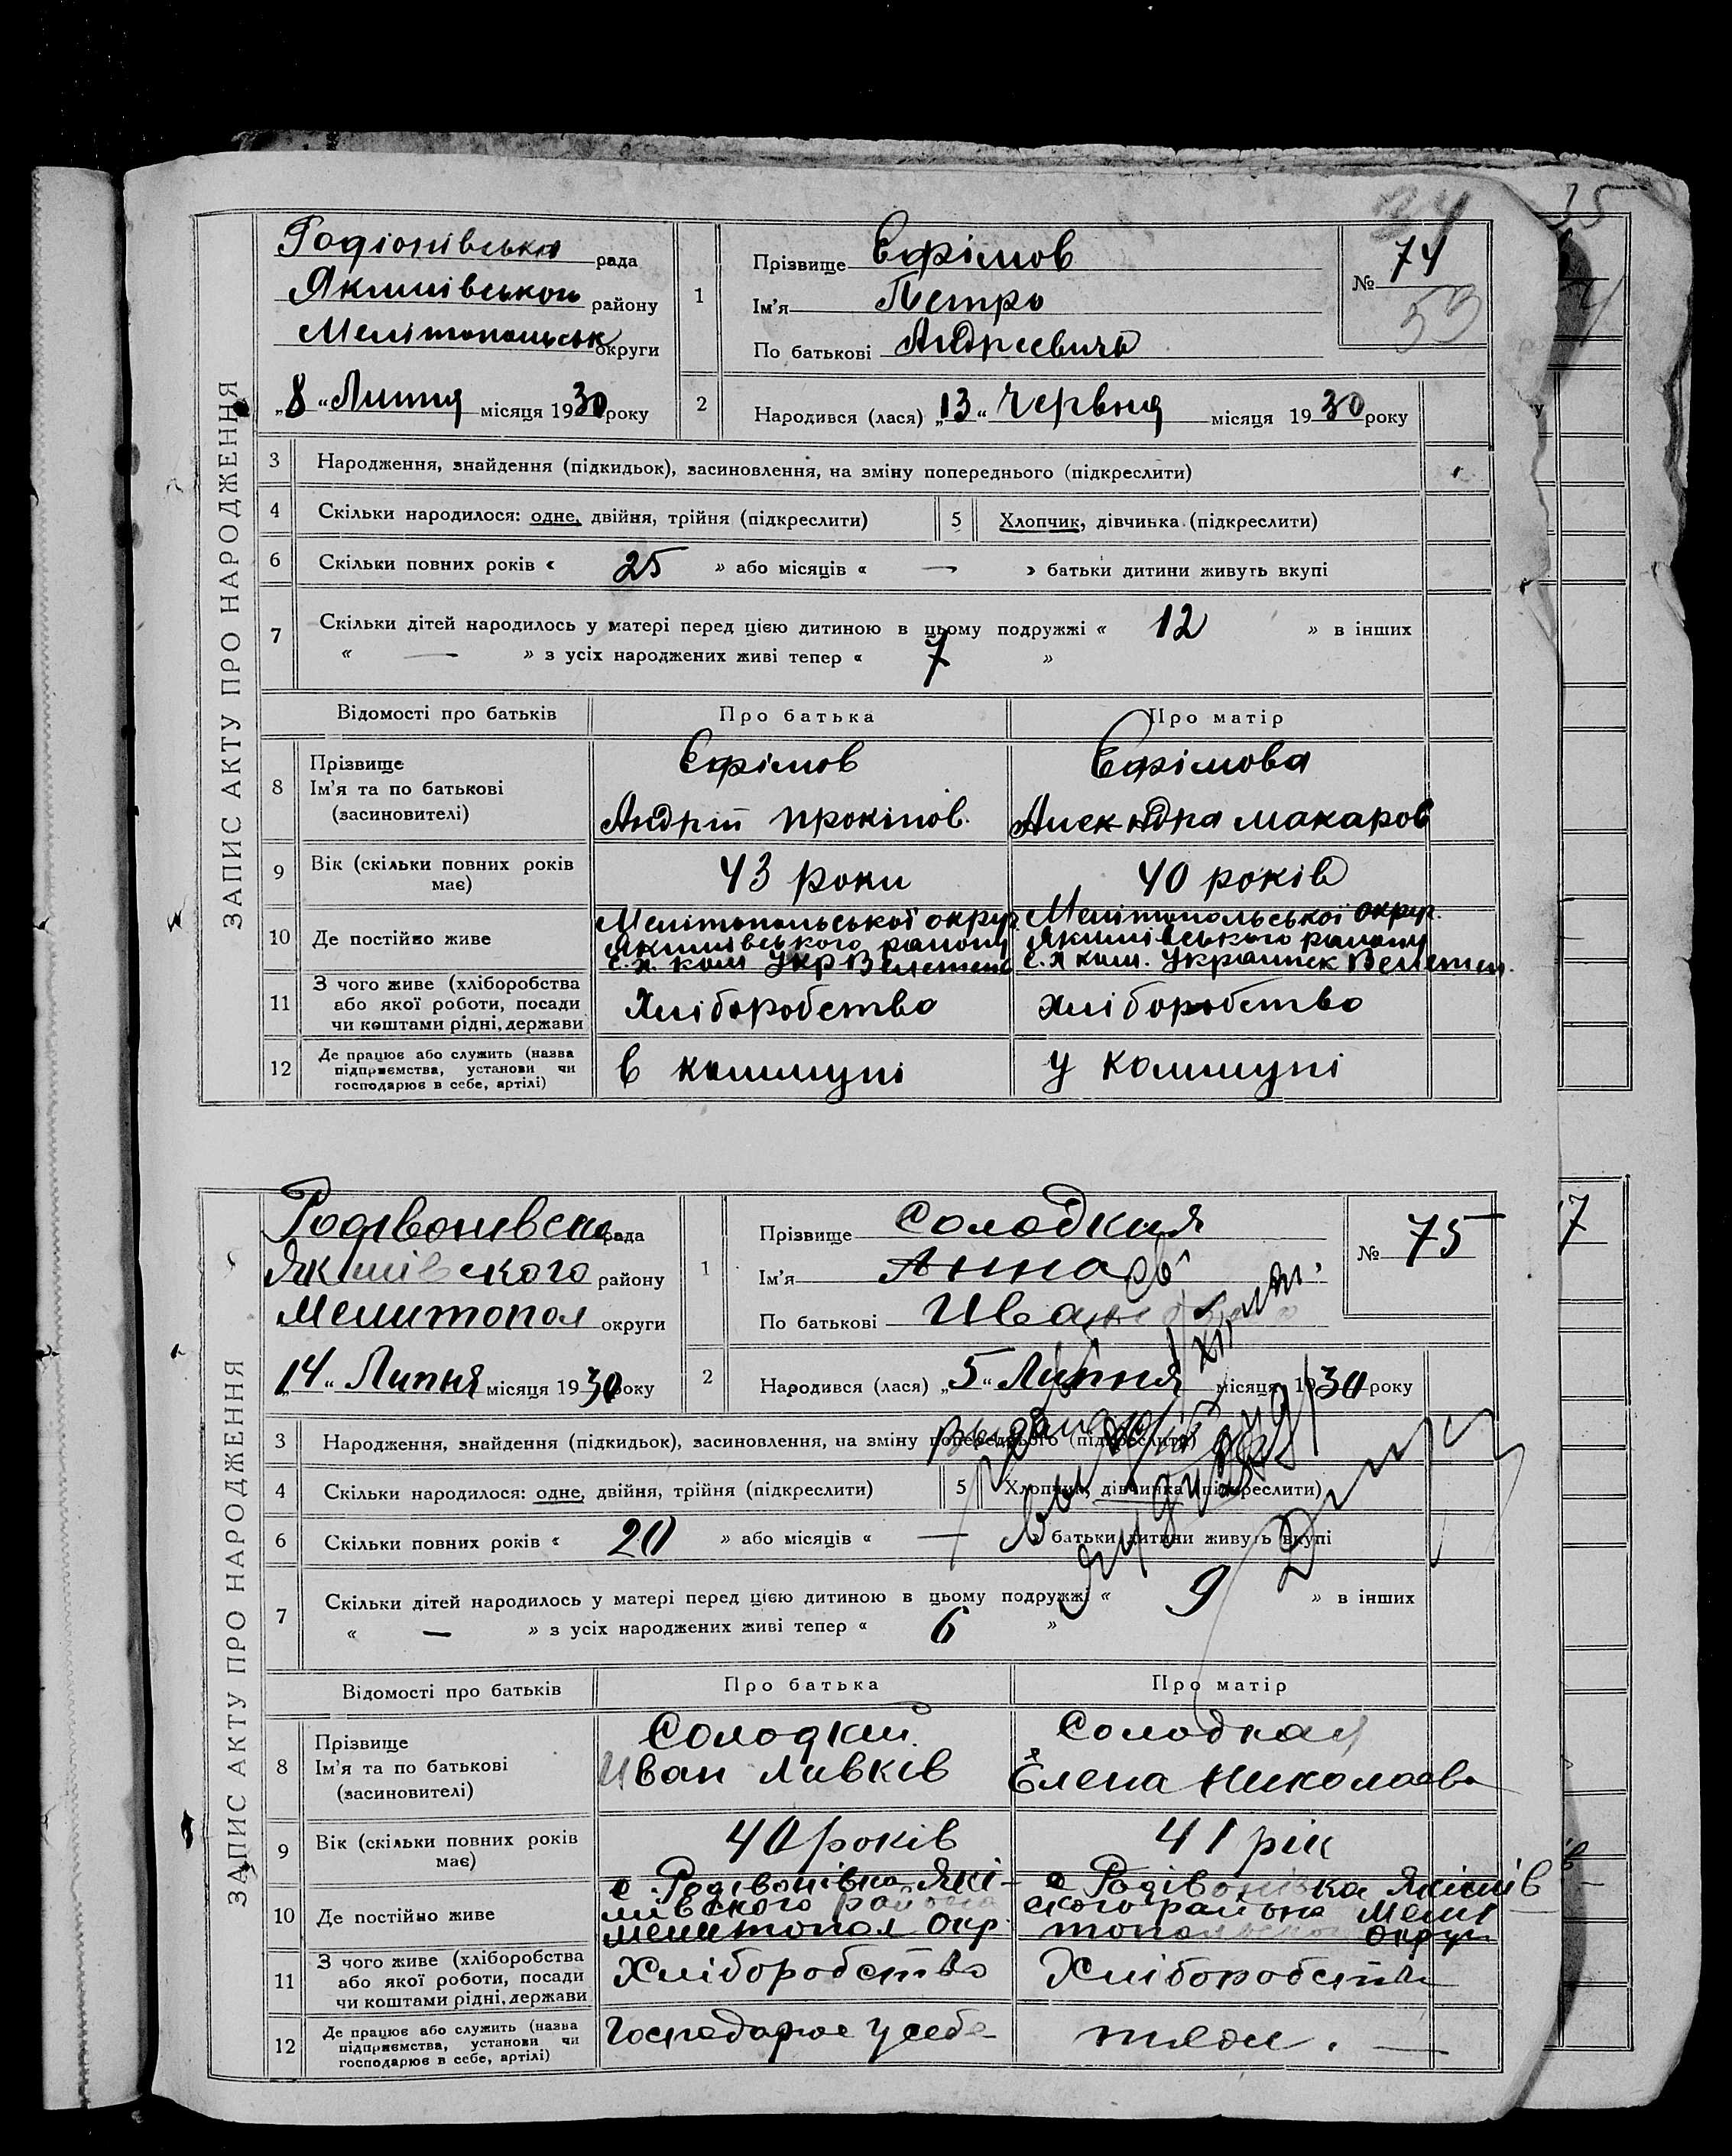 ЗАПИС АКТУ ПРО НАРОДЖЕННЯ
Родіонівська рада
Якимівського району
Мелітопольськ округи
„8“ Липня місяця 1930 року
1
Прізвище Ефімов
Ім'я Петро
По батькові Андреевичь
№ 74
53
2 Народився (лася) „13“ червня місяця 1930 року
3 Народження, знайдення (підкидьок), засиновлення, на зміну попереднього (підкреслити)
4 Скільки народилося: одне, двійня, трійня (підкреслити) 5 Хлопчик, дівчинка (підкреслити)
6 Скільки повних років « 25 » або місяців « — » батьки дитини живуть вкупі
7 Скільки дітей народилось у матері перед цією дитиною в цьому подружжі « 12 » в інших
« — » з усіх народжених живі тепер « 7 »
Відомості про батьків Про батька Про матір
8 Прізвище
Ім'я та по батькові
(засиновителі)
Ефімов
Андрій Прокіпов.
Ефімова
Александра Макаров
9 Вік (скільки повних років
має)
43 роки
40 років
10 Де постійно живе
Мелітопольської округ.
Якимівського району
с.х. ком Укр Велетень
Мелітопольської округ.
Якимівського району
с.х ком. Украинск Велетен.
11 З чого живе (хліборобства
або якої роботи, посади
чи коштами рідні, держави
Хліборобство
хліборобство
12 Де працює або служить (назва
підприємства, установи чи
господарює в себе, артілі)
в коммуні
у коммуні
ЗАПИС АКТУ ПРО НАРОДЖЕННЯ
Родівонивска рада
Якимівского району
Мелитопол округи
„14“ Липня місяця 1930 року
1
Прізвище Солодкая
Ім'я Анна
По батькові Иван
№ 75
2 Народився (лася) „5“ Липня місяця 1930 року
3 Народження, знайдення (підкидьок), засиновлення, на зміну попереднього (підкреслити)
4 Скільки народилося: одне, двійня, трійня (підкреслити) 5 Хлопчик, дівчинка (підкреслити)
6 Скільки повних років « 20 » або місяців « — » батьки дитини живуть вкупі
7 Скільки дітей народилось у матері перед цією дитиною в цьому подружжі « 9 » в інших
« — » з усіх народжених живі тепер « 6 »
Відомості про батьків Про батька Про матір
8 Прізвище
Ім'я та по батькові
(засиновителі)
Солодкий
Иван
Солодкая
Елена Николаевна
9 Вік (скільки повних років
має)
40 років
41 рік
10 Де постійно живе
с Родівонівка Які-
мівского района
мелитопол окр.
с Родівонівка Якімів
ского района Мелі
топольской округи
11 З чого живе (хліборобства
або якої роботи, посади
чи коштами рідні, держави
Хліборобство
Хліборобство
12 Де працює або служить (назва
підприємства, установи чи
господарює в себе, артілі)
Господарює у себе